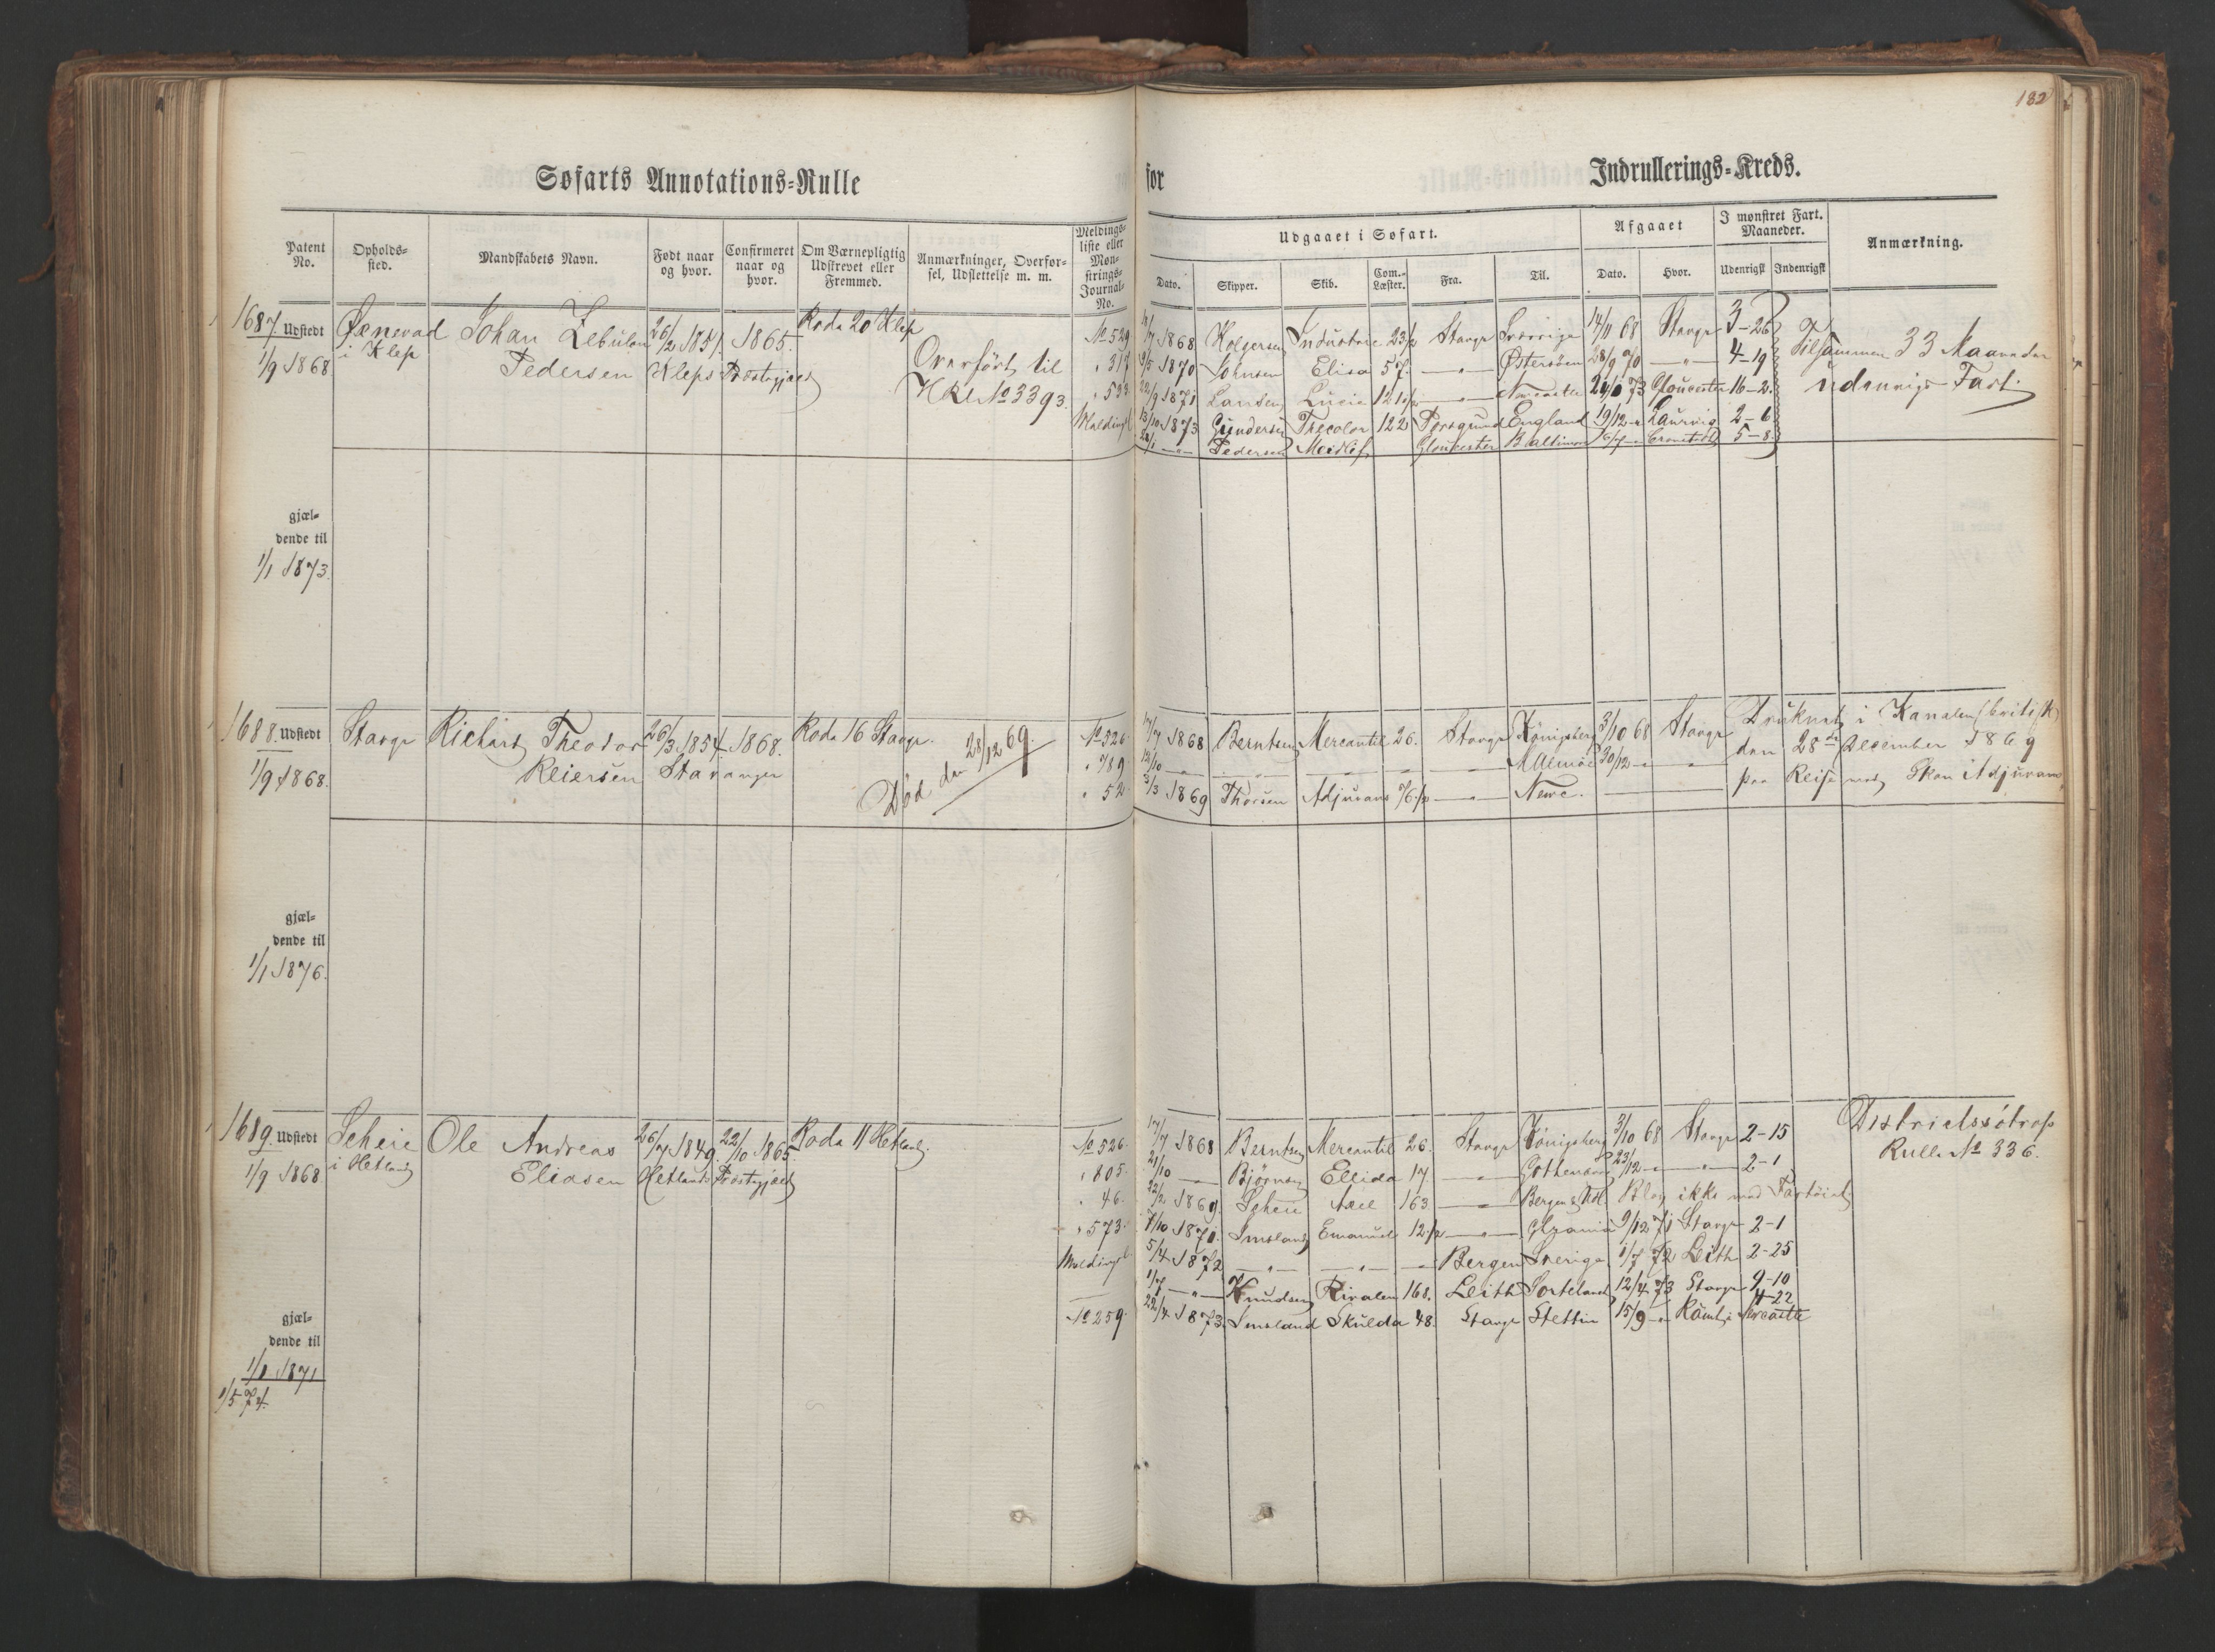 182
Søfarts Annotations-Rulle for Indrullerings-Kreds.
Patent No. Opholds-sted. Mandskabets Navn. Født naar og hvor. Confirmeret naar og hvor. Om Værnepligtig Udskrevet eller Fremmed. Anmærkninger, Overførsel, Udslettelse m. m. Meldingsliste eller Mønstrings-Journal-No.
Udgaaet i Søfart. Afgaaet I mønstret Fart. Maaneder. Anmærkning.
Dato. Skipper. Skib. Com.-Læster. Fra. Til. Dato. Hvor. Udenrigsk Indenrigsk
1687. Udstedt 1/9 1868
i Klep
Johan Zebulon Pedersen
26/2 1851. Kleps Præstegjæld
1865.
Roda 20 Klep
Overført til HRl No 3393.
No 529 /7 1868 Holgersen Industrie 23 1/2 Stavgr Sverrige 14/11 68 Stavgr 3-26
" 317 9/5 1870 Johnsen Elisa 57. -"- Østersøen 28/9 70 -"- 4-19
" 533 22/9 1871 Larsen Lucie 121 1/2 -"- Newcastle Gloucester 16-2.
Meldingsl 13/10 1873 Gundersen Trecolor 122 Porsgrund England 19/12 -"- Laurvig 2-6
Pedersen Gloucester Baltimore 5-8.
Tilsammen 33 Maaneder udenrigs Fart.
gjæl-
dende til
1/1 1873.
1688. Udstedt 1/9 1868.
Stavgr
Richard Theodor Reiersen
26/3 1854. Stavanger
1868.
Roda 16 Stavgr.
Død den 28/12 69.
No 526 17/7 1868 Berntsen Mercantil 26. Stavgr Königsberg 3/10 68 Stavgr
" 789 13/10 -"- -"- -"- -"- -"- Malmøe 30/12 -"- -"-
" 52 3/3 1869 Thorsen Adjurans 76 1/2 -"- Newc.
Druknet i Kanalen (britisk)
den 28de December 1869
paa Reise med Skon Adjurans
gjæl-
dende til
1/1 1876.
1689. Udstedt 1/9 1868
Scheie i Hetland
Ole Andreas Eliasen
26/7 1849. Hetlands Præstegjæld
22/10 1865.
Roda 11 Hetland.
No 526 17/7 1868 Berntsen Mercantil 26. Stavgr Königsberg 3/10 68 Stavgr 2-15
" 805 21/10 -"- Bjørnsen Ellida 17. -"- Gothenborg 23/12 -"- -"- 2-1
" 46 22/2 1869. Scheie Axel 163 -"- Bergen Blev ikke med Fartøiet
" 573 7/10 1871. Imsland Emanuel 12 1/2 -"- 9/12 71 Stavgr 2-1
Meldingsl 5/4 1872 -"- -"- -"- Bergen Sverige 1/7 72 Leith 2-25
1/7 -"- Knudsen Rivalen 168. Leith 12/4 73 Stavgr 9-10
No 259 22/4 1873. Imsland Skulda 48. Stavgr Stettin 15/9 -"- Rømt i Newcastle 4-22
Districtssøtrops Rulle No 336.
gjæl-
dende til
1/1 1871
1/5 74.